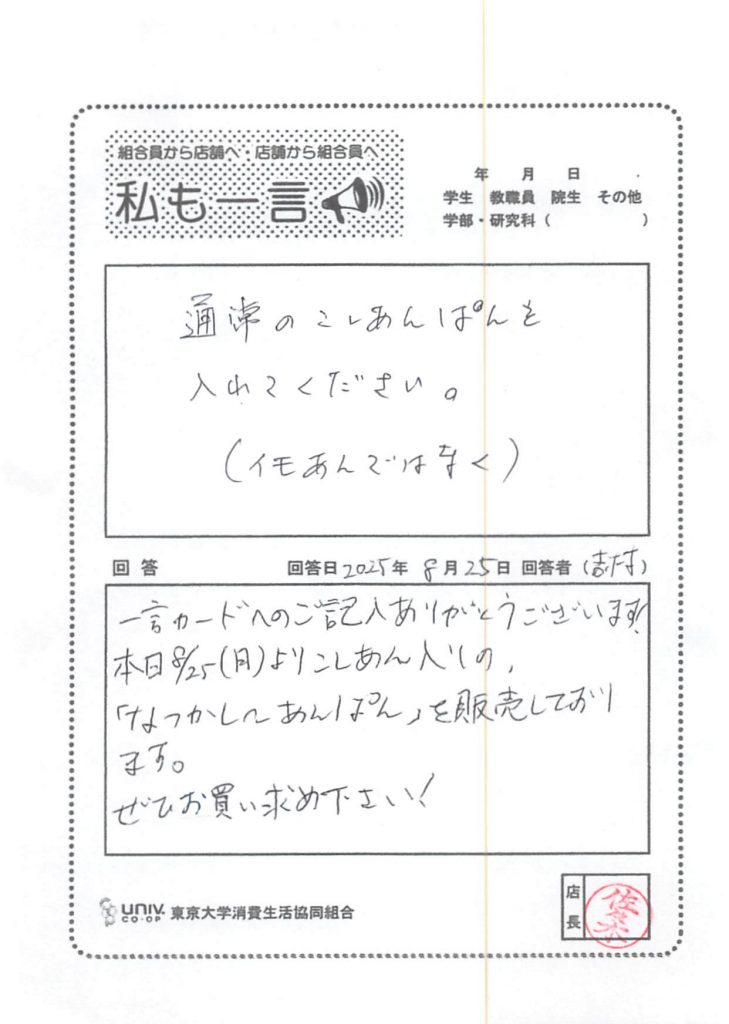 組合員から店舗へ・店舗から組合員へ
私も一言
年 月 日
学生 教職員 院生 その他
学部・研究科( )
通常のこしあんぱんを
入れてください。
(イモあんではなく)
回答 回答日2025年 8月25日 回答者(吉村)
一言カードへのご記入ありがとうございます!
本日8/25(月)よりこしあん入りの、
「なつかしのあんぱん」を販売しており
ます。
ぜひお買い求め下さい!
UNIV. CO-OP 東京大学消費生活協同組合
店長 佐々木